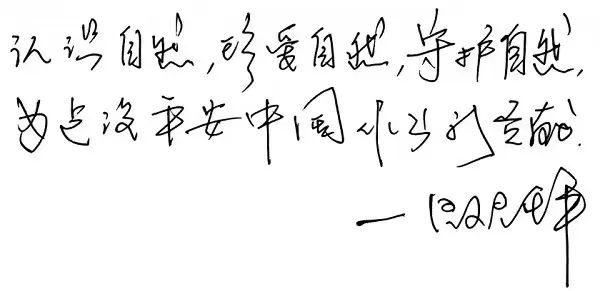 认识自然,珍爱自然,守护自然,
为建设平安中国作出新贡献.
一